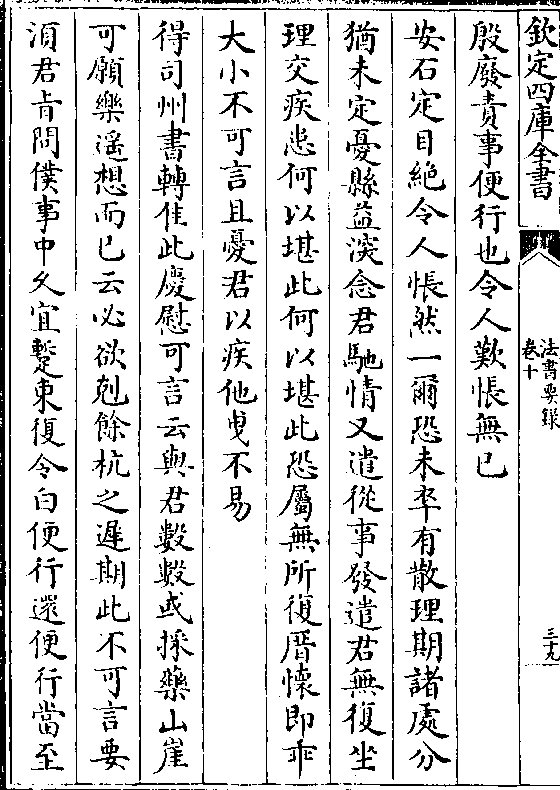 欽定四庫全書
法書要錄
卷十
三十九
殷廢責事便行也令人歎悵無已
安石定目絶令人悵然一爾恐未卒有散理期諸處分
猶未定憂縣益深念君馳情又遣從事發遣君無復坐
理交疾患何以堪此何以堪此恐屬無所復厝懐即乖
大小不可言且憂君以疾他曵不易
得司州書轉佳此慶慰可言云與君數數或採藥山崖
可願樂遥想而已云必欲剋餘杭之遲期此不可言要
湏君旨問僕事中久宜蹔東復令白便行還便行當至